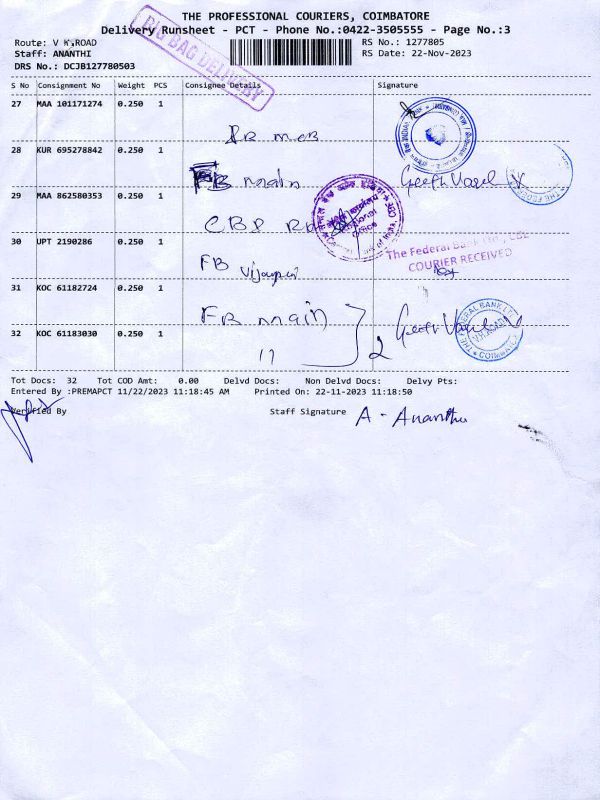 THE PROFESSIONAL COURIERS, COIMBATORE
Delivery Runsheet - PCT - Phone No.:0422-3505555 - Page No.:3
BIG BAG DELIVERY
Route: V K;ROAD
RS No.: 1277805
Staff: ANANTHI
RS Date: 22-Nov-2023
DRS No.: DCJB127780503
S No Consignment No Weight PCS Consignee Details Signature
27 MAA 101171274 0.250 1
28 KUR 695278842 0.250 1
FB main
29 MAA 862580353 0.250 1
30 UPT 2190286 0.250 1
The Federal Bank Ltd., CBE
COURIER RECEIVED
FB Vijaypur
31 KOC 61182724 0.250 1
FB main
32 KOC 61183030 0.250 1
11 2
THE FEDERAL BANK LTD
COIMBATORE
Tot Docs: 32 Tot COD Amt: 0.00 Delvd Docs: Non Delvd Docs: Delvy Pts:
Entered By :PREMAPCT 11/22/2023 11:18:45 AM Printed On: 22-11-2023 11:18:50
Verified By Staff Signature A - Ananthi